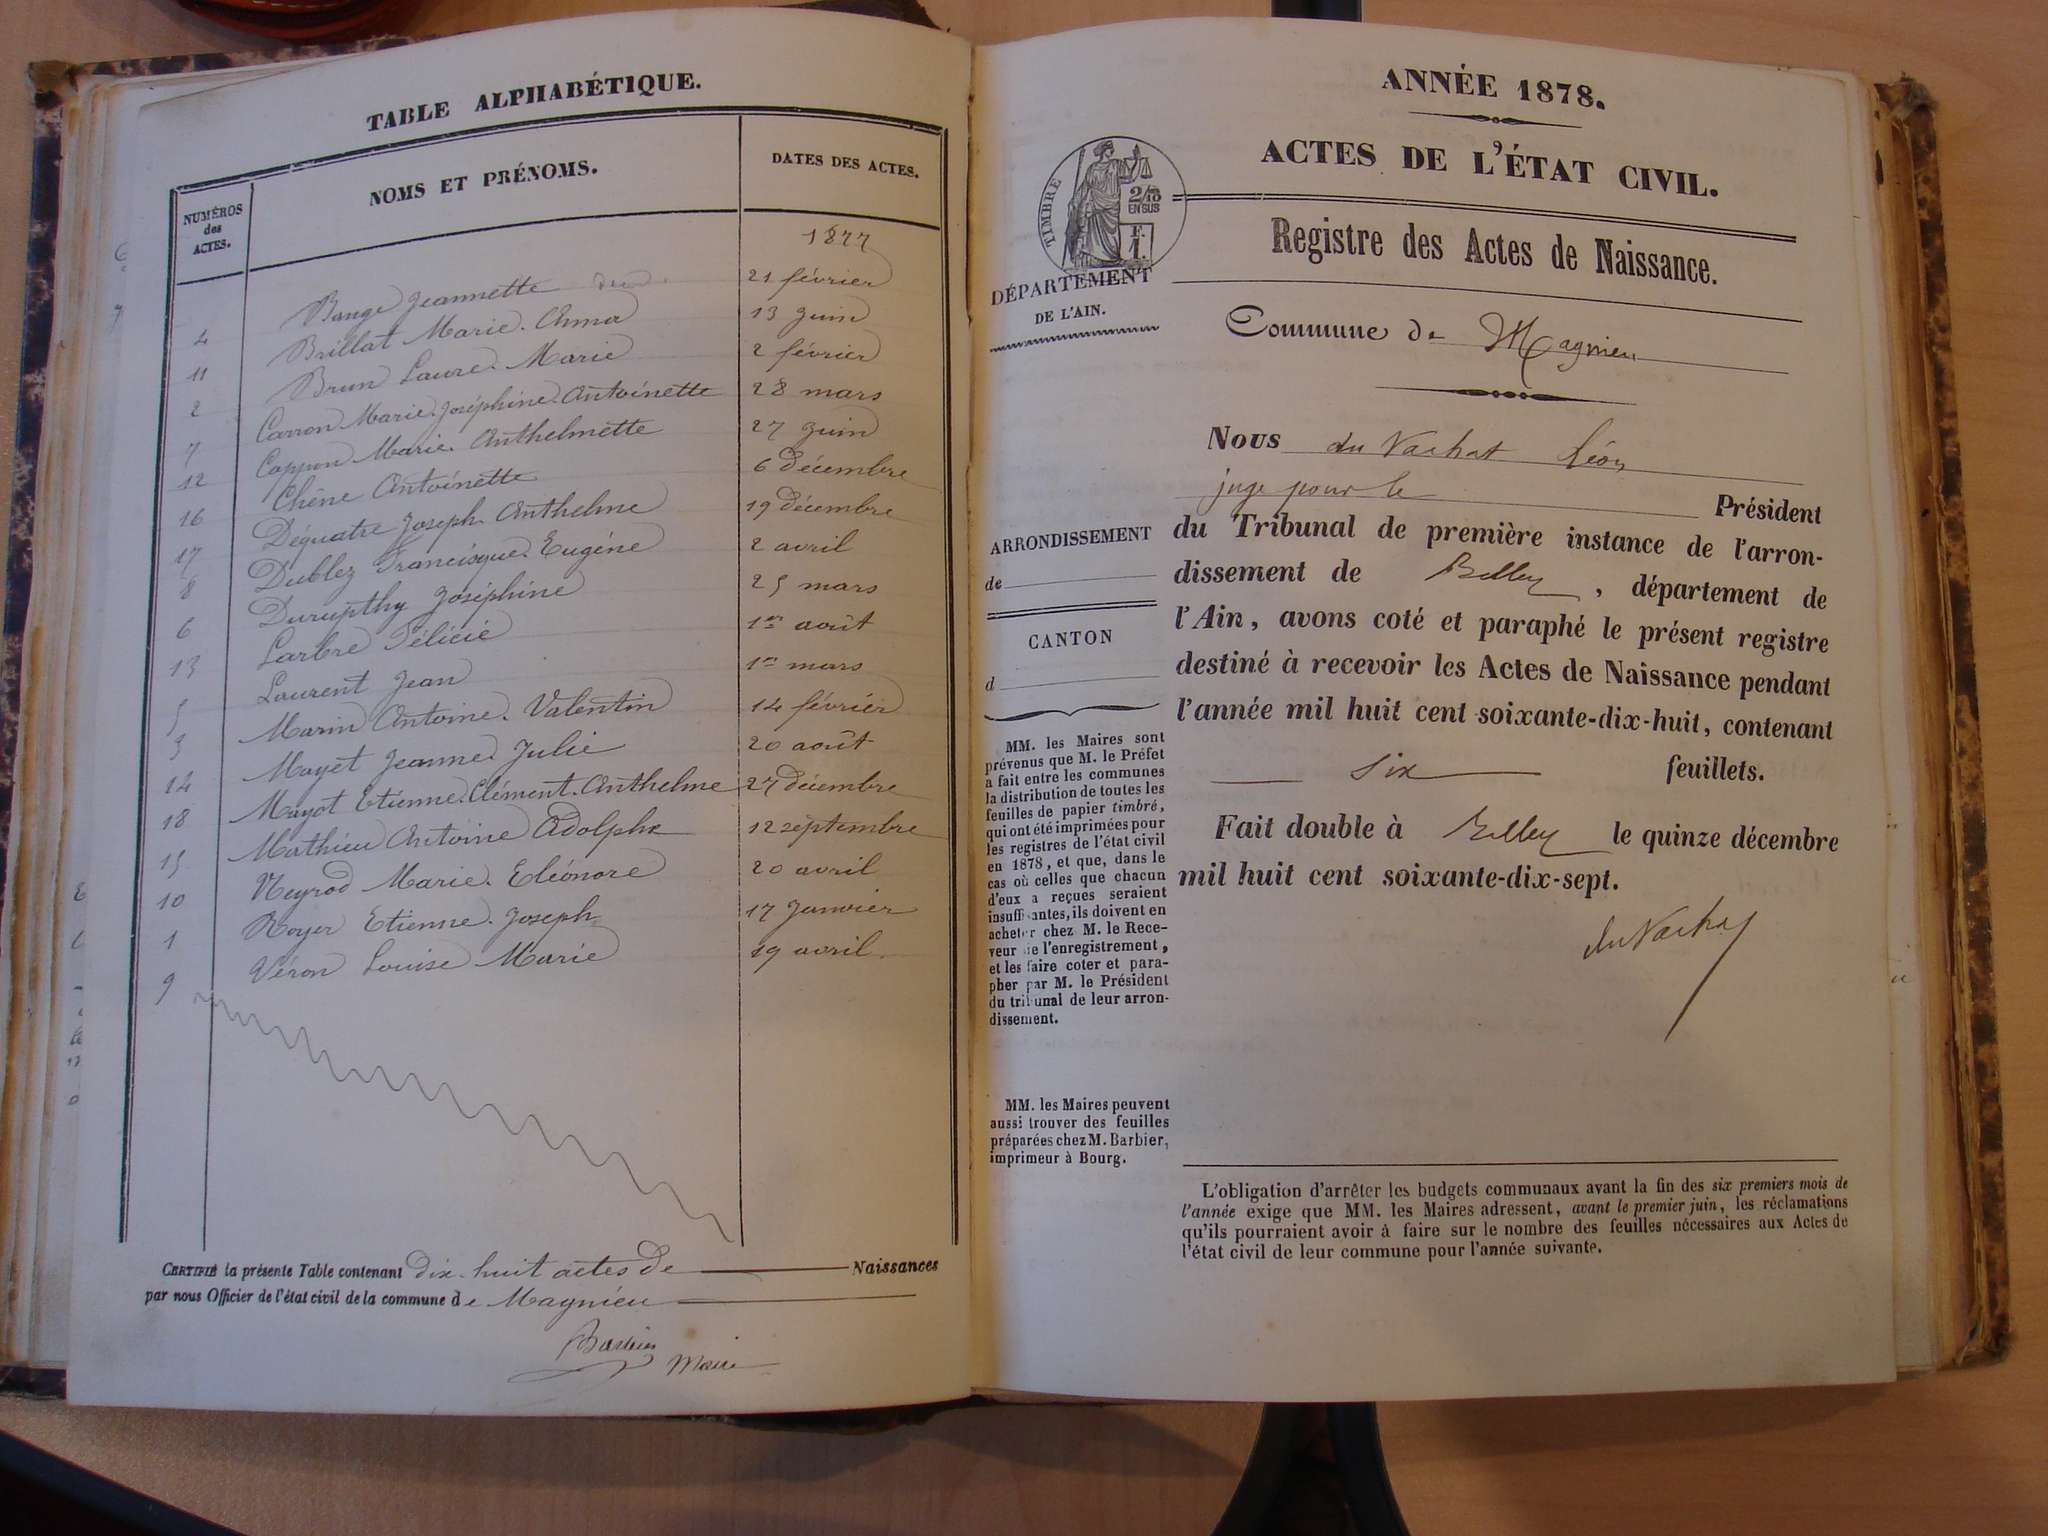 TABLE ALPHABÉTIQUE.
NUMÉROS des ACTES.
NOMS ET PRÉNOMS.
DATES DES ACTES.
1877
4 Bange Jeannette 21 février
11 Brillat Marie. Anna 13 Juin
2 Brun Laure. Marie 2 février
7 Carron Marie. Joséphine. Antoinette 28 mars
12 Coppon Marie. Anthelmette 27 Juin
16 Chêne Antoinette 6 décembre
17 Déquatre Joseph. Anthelme 19 décembre
8 Dublez Francisque. Eugène 2 avril
6 Durupthy Joséphine 25 mars
13 Larbre Félicie 1er août
5 Laurent Jean 1er mars
3 Marin Antoine. Valentin 14 février
14 Mayet Jeanne. Julie 20 août
18 Mayot Etienne. Clément. Anthelme 27 décembre
15 Mathieu Antoine Adolphe 12 septembre
10 Neyrod Marie. Eléonore 20 avril
1 Royer Etienne. Joseph 17 Janvier
9 Véron Louise Marie 19 avril.
CERTIFIÉ la présente Table contenant dix-huit actes de Naissances
par nous Officier de l'état civil de la commune de Magnieu
Maire
ANNÉE 1878.
ACTES DE L'ÉTAT CIVIL.
TIMBRE
2/10
EN SUS
F.
1.
DÉPARTEMENT
DE L'AIN.
Registre des Actes de Naissance.
Commune de Magnieu
Nous du Vachat Léon
juge pour le Président
du Tribunal de première instance de l'arron-
dissement de Belley, département de
l'Ain, avons coté et paraphé le présent registre
destiné à recevoir les Actes de Naissance pendant
l'année mil huit cent soixante-dix-huit, contenant
six feuillets.
Fait double à Belley le quinze décembre
mil huit cent soixante-dix-sept.
du Vachat
ARRONDISSEMENT
de
CANTON
d
MM. les Maires sont
prévenus que M. le Préfet
a fait entre les communes
la distribution de toutes les
feuilles de papier timbré,
qui ont été imprimées pour
les registres de l'état civil
en 1878, et que, dans le
cas où celles que chacun
d'eux a reçues seraient
insuffisantes, ils doivent en
acheter chez M. le Rece-
veur de l'enregistrement,
et les faire coter et para-
pher par M. le Président
du tribunal de leur arron-
dissement.
MM. les Maires peuvent
aussi trouver des feuilles
préparées chez M. Barbier,
imprimeur à Bourg.
L'obligation d'arrêter les budgets communaux avant la fin des six premiers mois de
l'année exige que MM. les Maires adressent, avant le premier juin, les réclamations
qu'ils pourraient avoir à faire sur le nombre des feuilles nécessaires aux Actes de
l'état civil de leur commune pour l'année suivante.